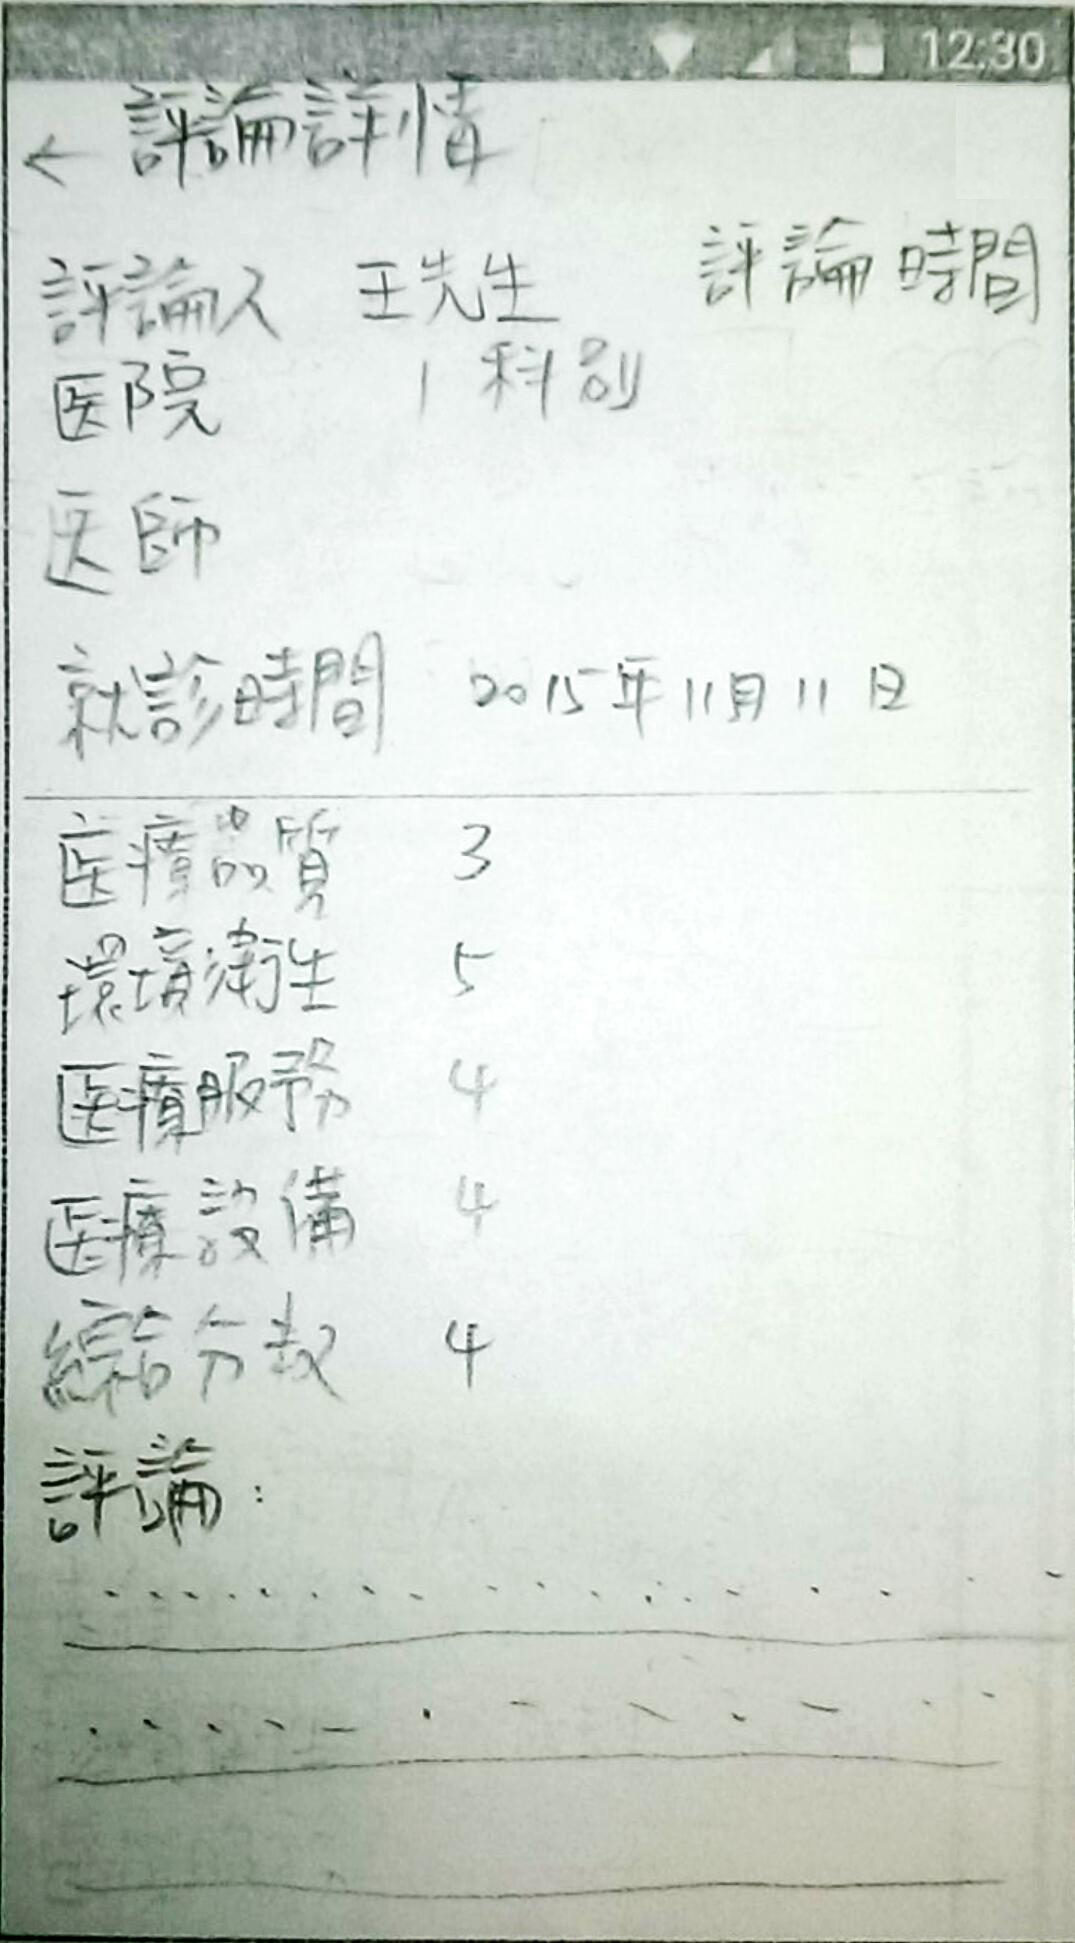 12:30
← 評論詳情
評論人 王先生 評論時間
医院 / 科別
医師
就診時間 2015年11月11日
医療品質 3
環境衛生 5
医療服務 4
医療設備 4
綜合分数 4
評論：